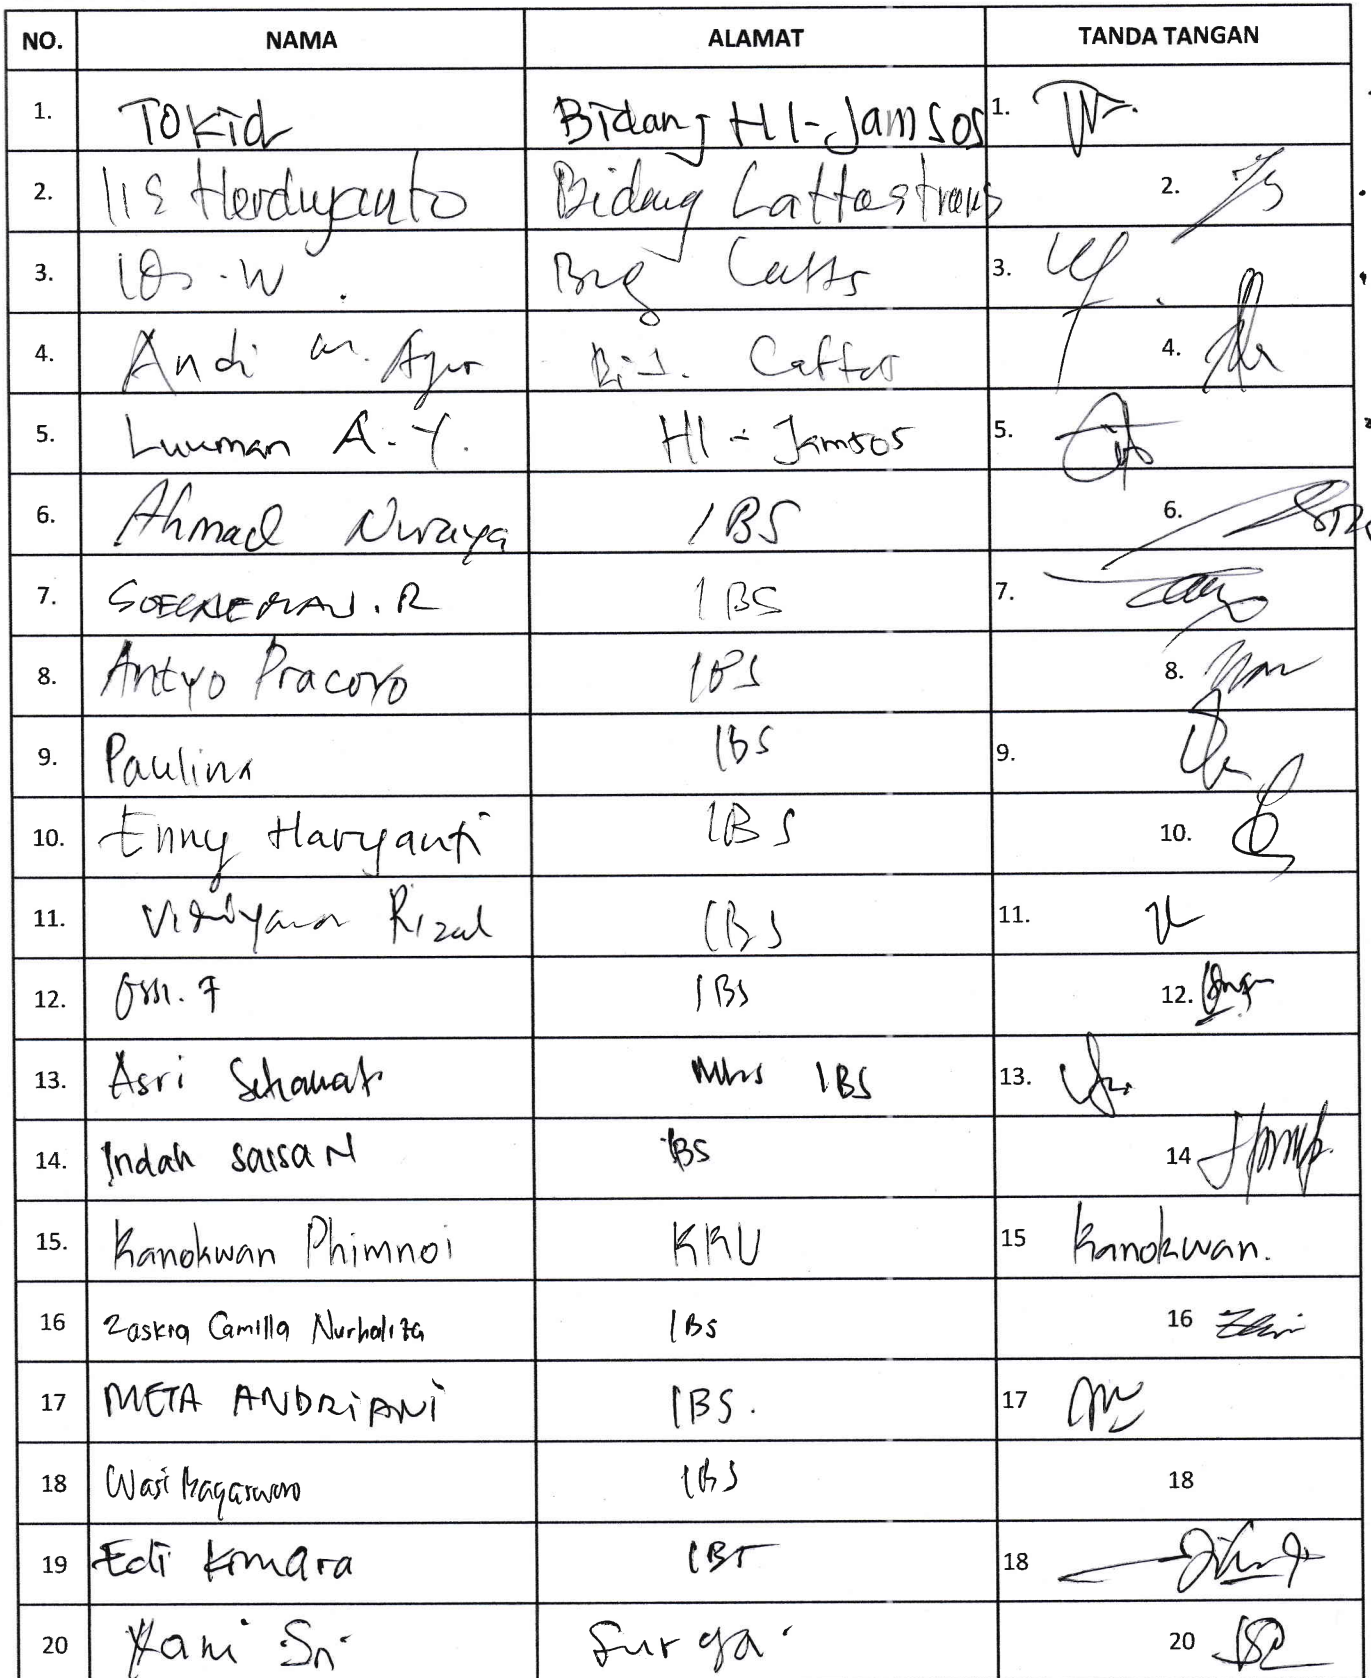 NO. NAMA ALAMAT TANDA TANGAN
1. Tokid Bidang HI-Jamsos 1.
2. IIS Herduyanto Bidang Lattastrans 2.
3. 3.
4. Andi Bid. Lattas 4.
5. Luuman A.Y. HI - Jamsos 5.
6. Ahmad Nuraya IBS 6.
7. IBS 7.
8. Antyo Pracoyo IBS 8.
9. Paulina IBS 9.
10. Enny Haryanti IBS 10.
11. Rizal IBS 11.
12. IBS 12.
13. Asri IBS 13.
14. Indah saisaN IBS 14
15. Kanokwan Phimnoi KKU 15 Kanokwan.
16 Zaskia Camilla Nurhaliza IBS 16
17 META ANDRIANI IBS. 17
18 Wasi IBS 18
19 Edi Komara IBS 18
20 Yani Sri Surga 20